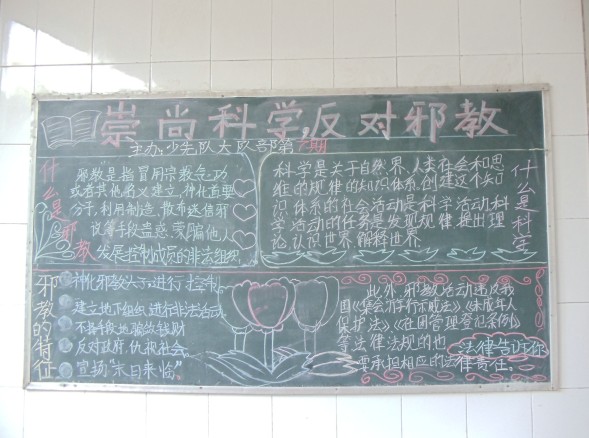 崇尚科学,反对邪教
主办:少先队大队部第六期
什么是邪教
邪教"是指冒用宗教气功
或者其他名义建立,神化首要
分子,利用制造、散布迷信邪
说等手段蛊惑、蒙骗他人
发展控制成员的非法组织
科学是关于自然界、人类社会和思
维的规律的知识体系,创建这个知
识体系的社会活动是科学活动,科
学活动的任务是发现规律,提出理
论,认识世界,解释世界
什么是科学
邪教的特征
神化邪教头子,进行
建立地下组织,进行非法活动
不择手段地骗敛钱财
反对政府,仇视社会
宣扬"末日来临"
此外,邪教活动违反我
国《集会游行示威法》《未成年人
保护法》《社团管理登记条例》
等法律法规的也
要承担相应的法律责任。
法律告诉你